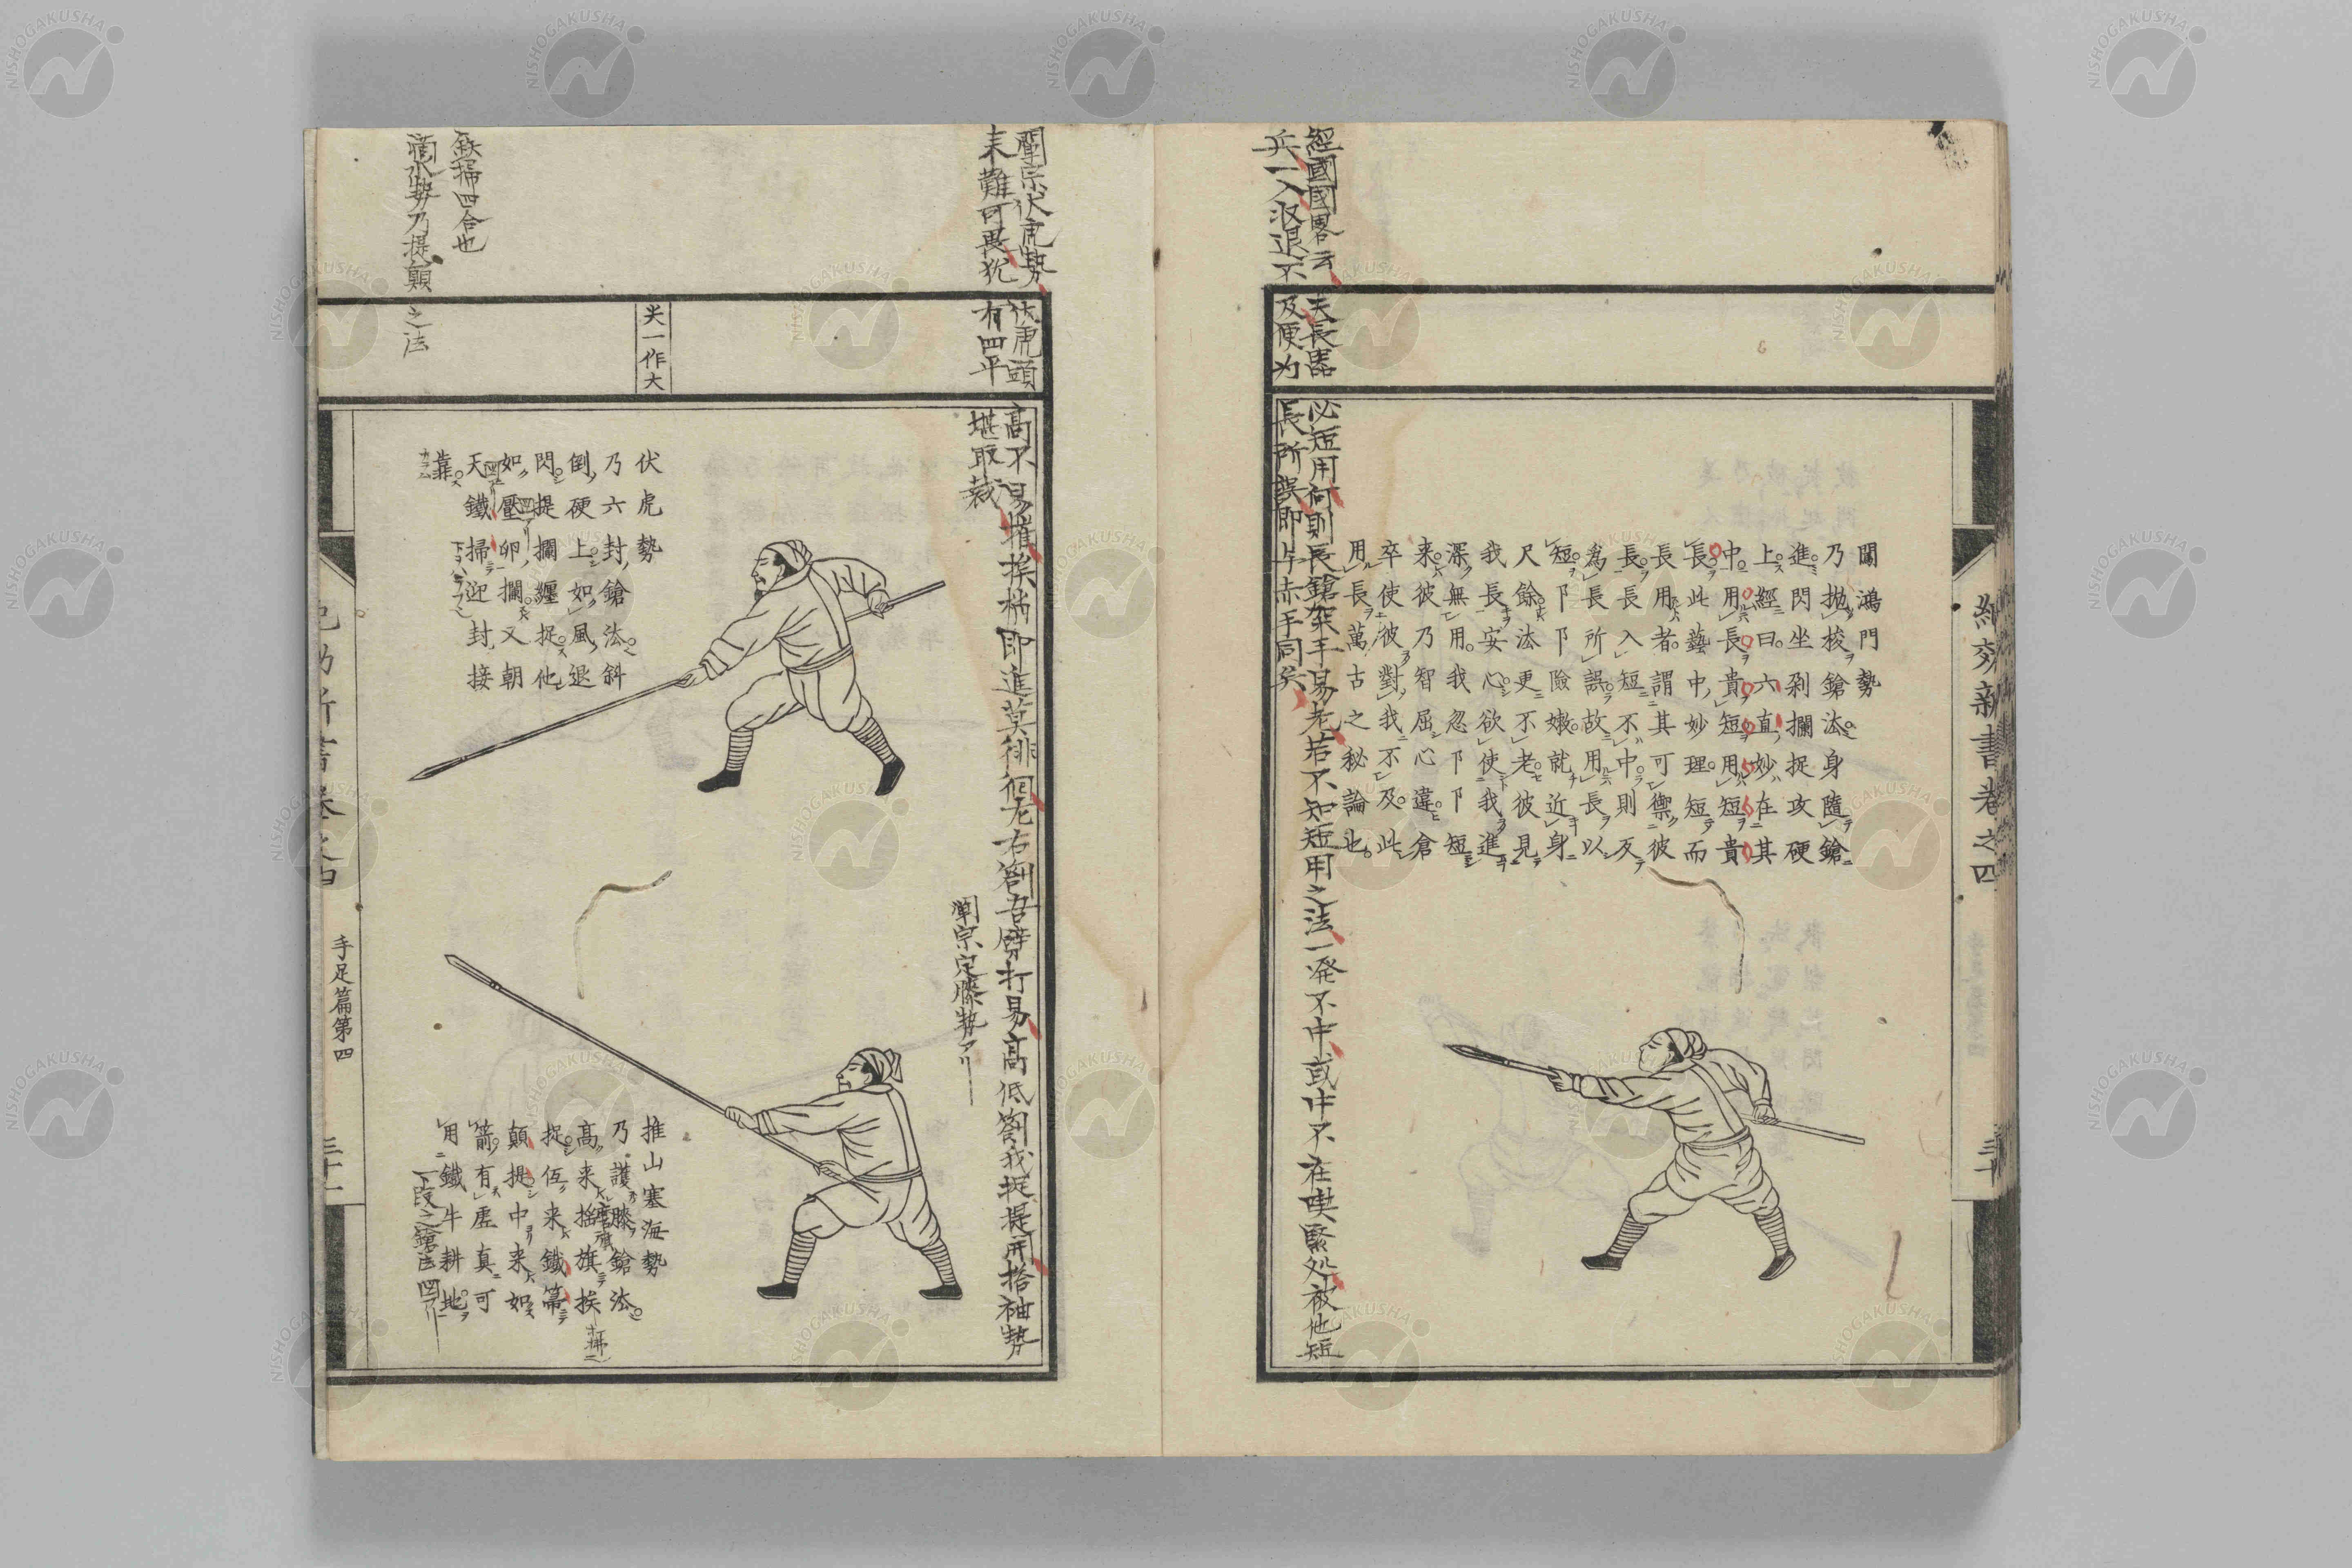 紀效新書卷之四
三十
闖鴻門勢
乃抛梭鎗法身隨鎗
進閃坐剁攔捉攻硬
上經曰六直妙在其
中用長貴短用短貴
長此藝中妙理短而
長用者謂其可禦彼
長長入短不中則反
爲長所誤故用長以
短卩卩險嫩就近身
尺餘法更不老彼見
我長安心欲使我進
深無用我忽卩卩短
来彼乃智屈心違倉
卒使彼對我不及此
用長萬古之秘論也
経國國畧云夫長器必短用何則長鎗架手易老若不知短用之法一発不中或中不在喫緊処被他短
兵一入収退不及便为長所誤即与赤手同矣
闡宗伏虎勢伏虎頭高不易摧挨槍即進莫徘徊左右劄吾劈打易高低劄我捉提開拾袖勢
末難可畏犹有四平堪取裁
闡宗定膝勢アリ
尖一作大
鉄掃四合也
滴水勢乃提顛之法
伏虎勢
乃六封鎗法斜
倒硬上如風退
閃提攔纏捉他
如壓卵攔又朝
天鐵掃迎封接
靠
推山塞海勢
乃護膝鎗法
高来搖旗挨
捉低来鐵箒
顛提中来如
箭有虛真可
用鐵牛耕地
一段之鎗法四アリ
手足篇第四
三十一